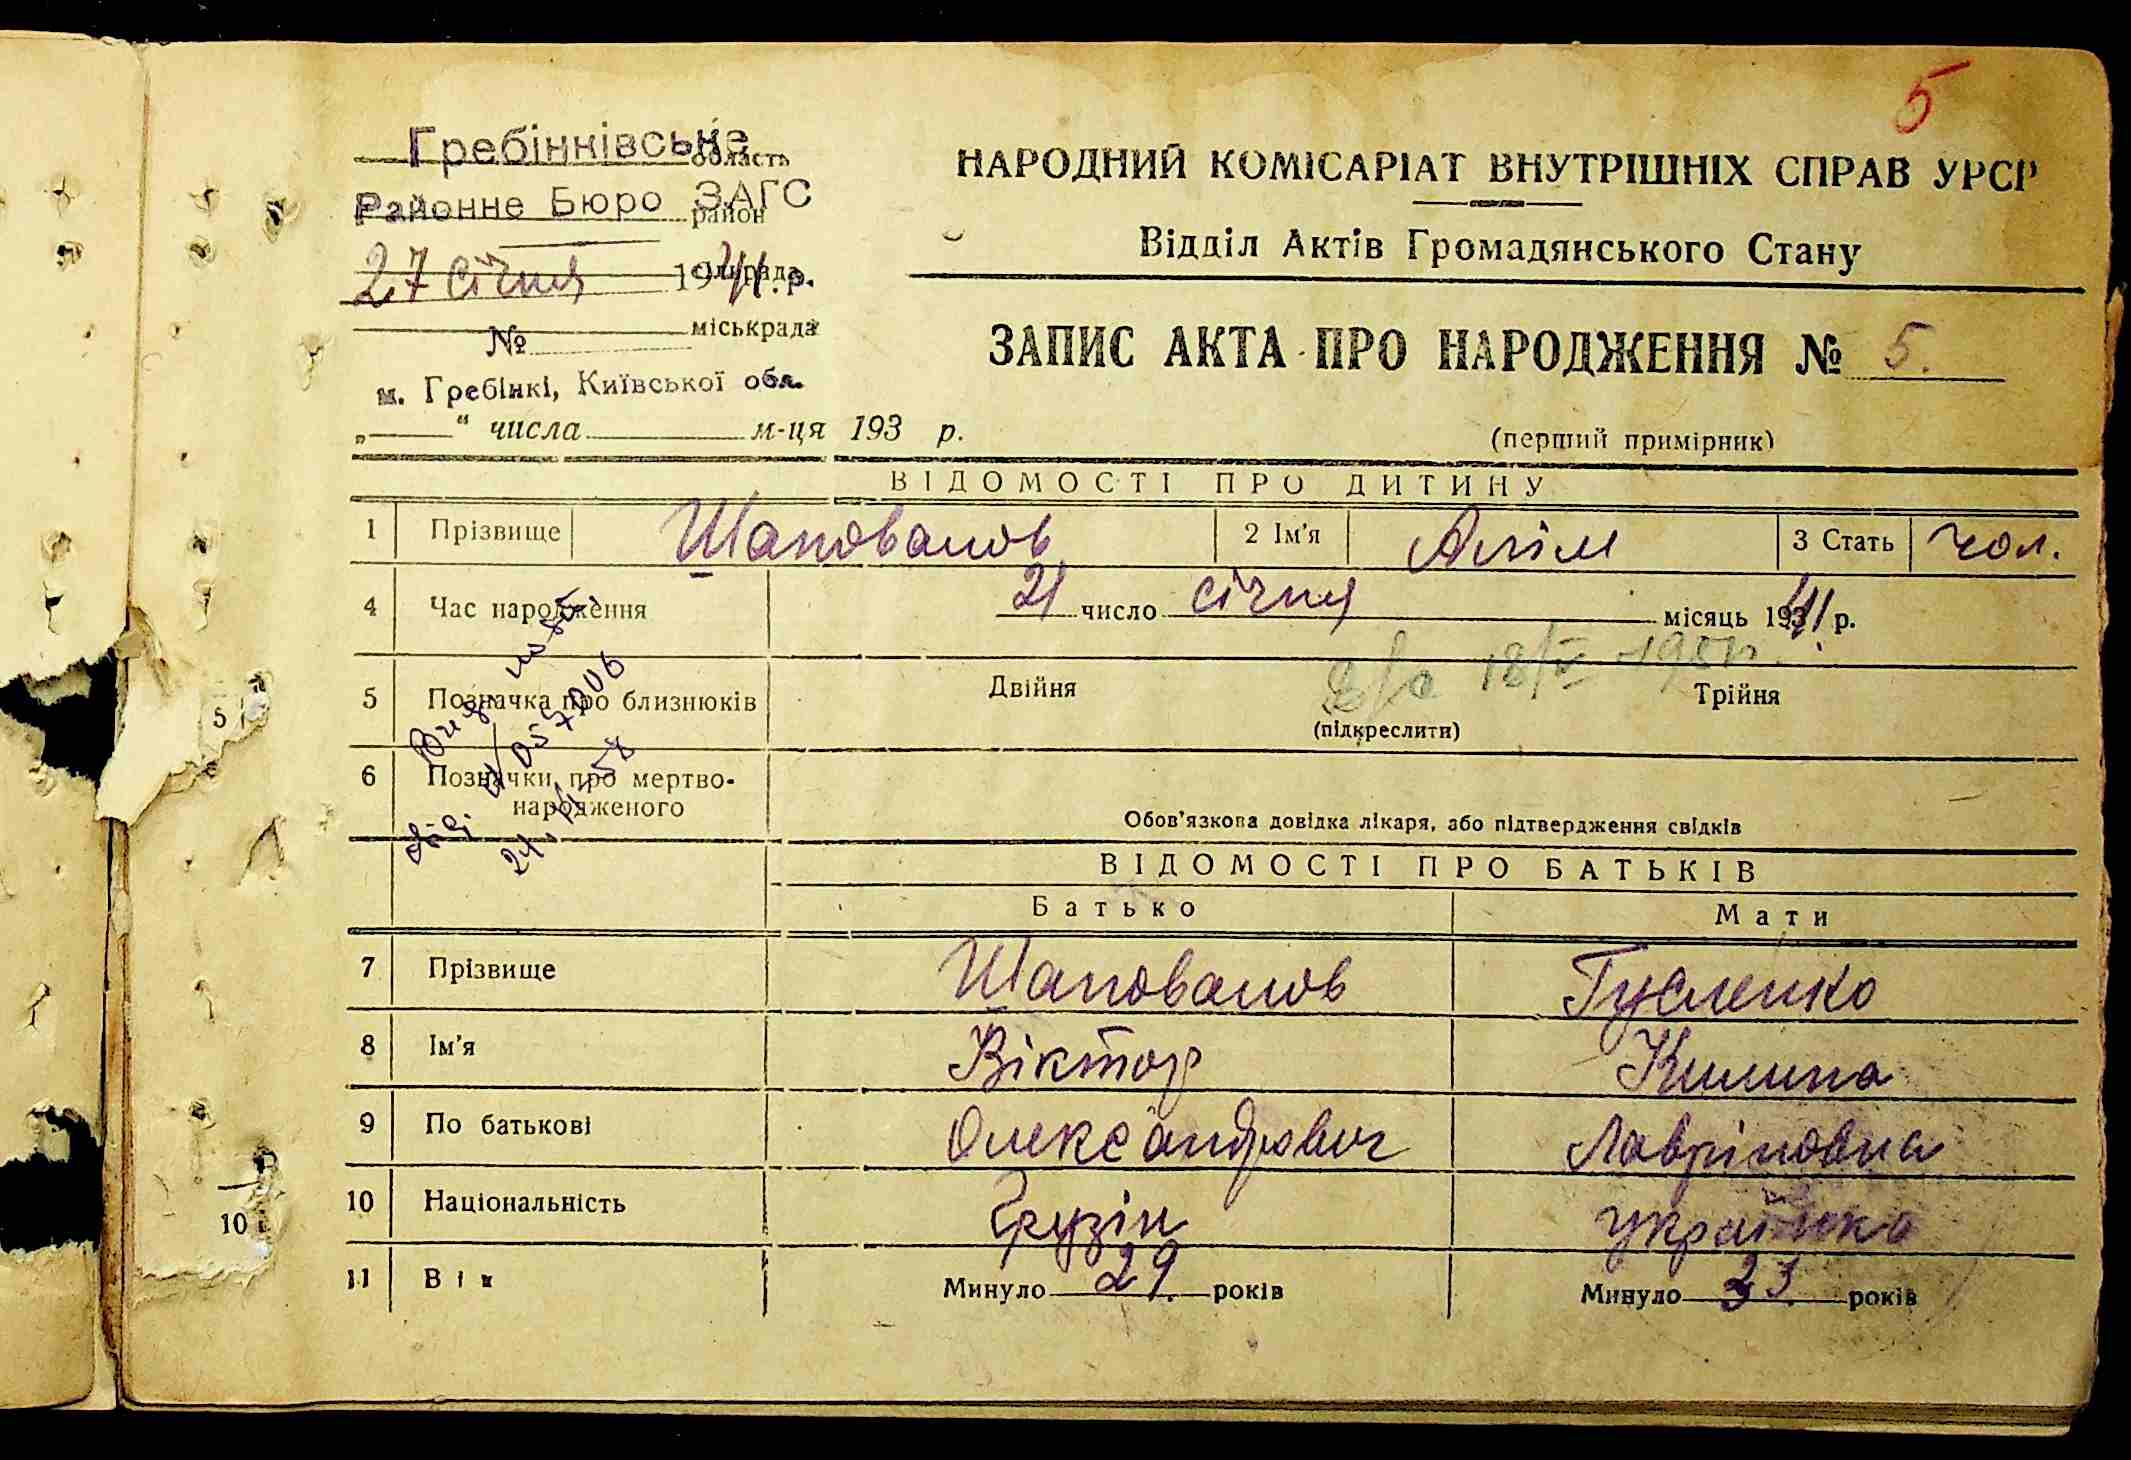 5
Гребінківське
область
Районне Бюро ЗАГС
район
27 січня 1941 р.
сільрада
№ міськрада
м. Гребінкі, Київської обл.
„ “ числа м-ця 193 р.
НАРОДНИЙ КОМІСАРІАТ ВНУТРІШНІХ СПРАВ УРСР
Відділ Актів Громадянського Стану
ЗАПИС АКТА ПРО НАРОДЖЕННЯ № 5.
(перший примірник)
ВІДОМОСТІ ПРО ДИТИНУ
1 Прізвище Шаповалов 2 Ім'я Алім 3 Стать чол.
4 Час народження 21 число січня місяць 1941 р.
18/V 195
5 Позначка про близнюків Двійня Трійня
(підкреслити)
6 Позначки про мертво-
народженого
Обов'язкова довідка лікаря, або підтвердження свідків
ВІДОМОСТІ ПРО БАТЬКІВ
Батько Мати
7 Прізвище Шаповалов Гусленко
8 Ім'я Віктор Килина
9 По батькові Олександрович Лавріновна
10 Національність Грузін українка
11 Вік Минуло 29. років Минуло 23. років
5
10